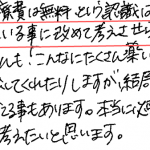 療費は無料という認識に
いる事に改めて考えさせら
んも!こんなにたくさん薬い
なしてくれたりしますが、結局
てる事もあります。本当に必
考えたいと思います。